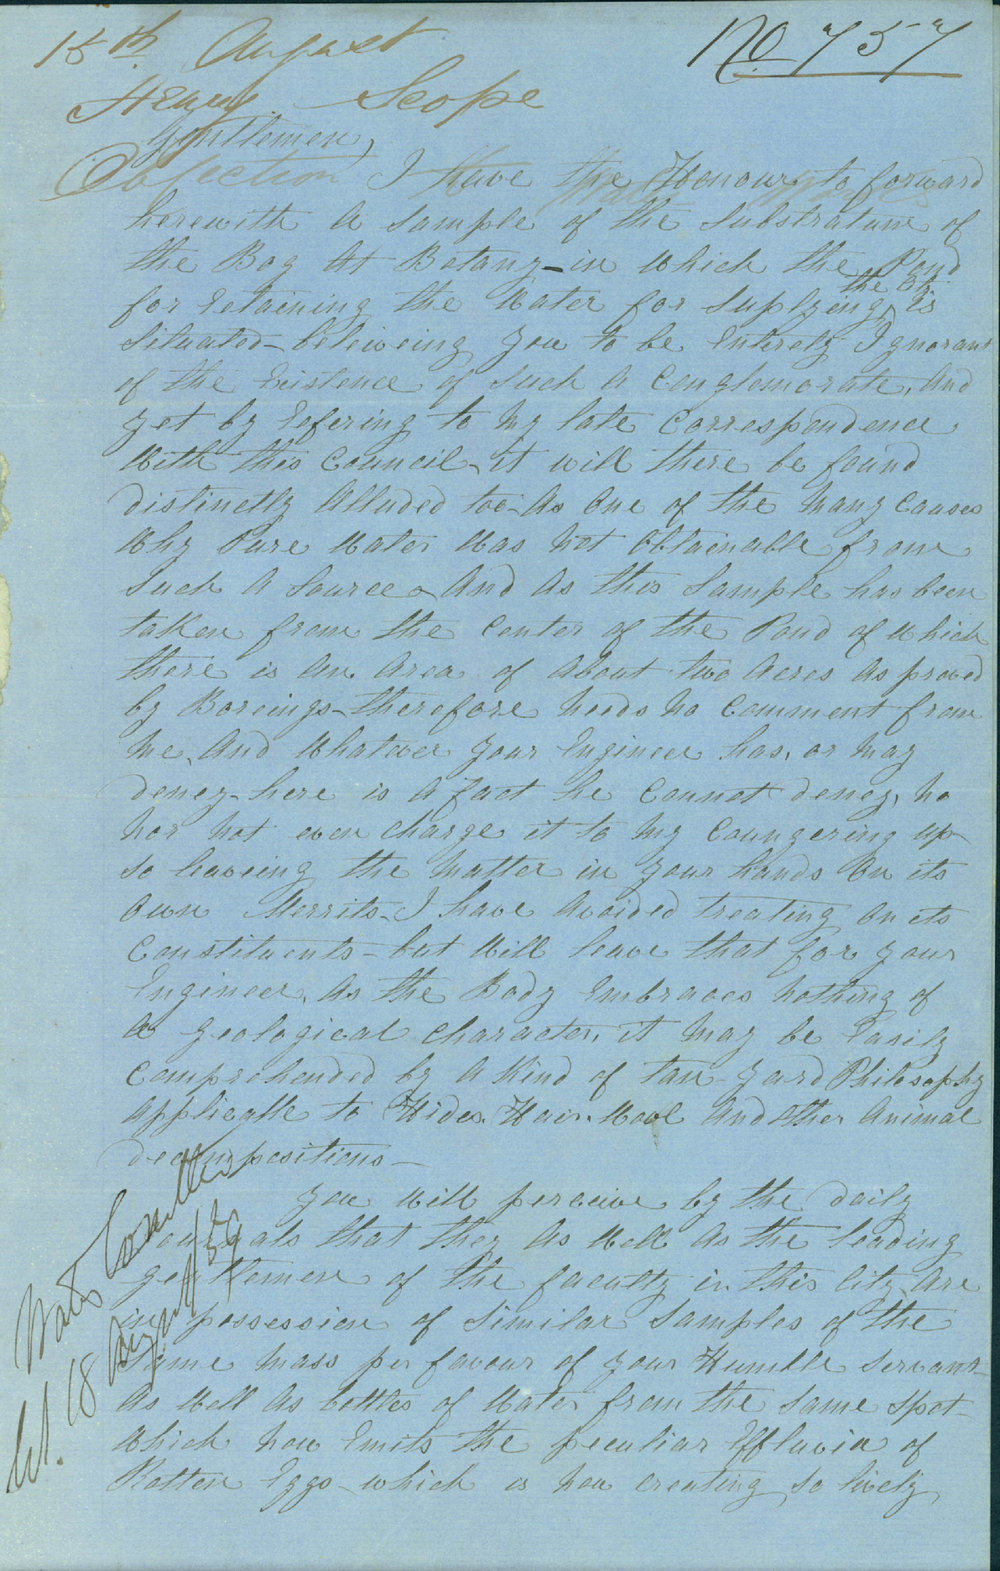 No 757
15th August
Henry Scope
Objection Water Works
Gentlemen,
I Have the Honour to forward
herewith A Sample of the Substratum of
the Bog At Botany - in Which the Pond
for retaining the Water for Suplying the City is
Situated - beleiveing you to be Entirely Ignorant
of the Existence of Such A Conglomorate. And
yet by refering to My late Correspondence
With this Council - it will there be found
distinctly Alluded too - As One of the Many Causes
Why Pure Water Was Not Obtainable from
Such A Source - And As this Sample has been
taken from the Center of the Pond of Which
there is An Area of About two Acres As proved
by Boreings - therefore Needs No Comment from
Me. And Whatever your Engineer has, or May
deney - here is A fact he Cannot deney, No
Nor Not even Charge it to My Coungering up
So leaveing the Matter in your hands On its
Own Merrits - I have Avoided treating On its
Constituents - but Will leave that for your
Engineer. As the Body Embraces Nothing of
A Geological Character, it May be Easily
Comprehended by A Kind of Tan-yard Philosophy
Applicable to Hides. Hair. Wool And Other Animal
decompositions -
You Will perceive by the daily
Journals that they As Well As the leading
Gentlemen of the faculty in this City Are
in possession of Similar Samples of the
Same Mass per favour of your Humble Servant -
As Well As bottles of Water from the Same Spot -
Which Now Emits the peculiar Effluvia of
Rotten Eggs - which is Now Creating So lively
Water Committee
18 August /59